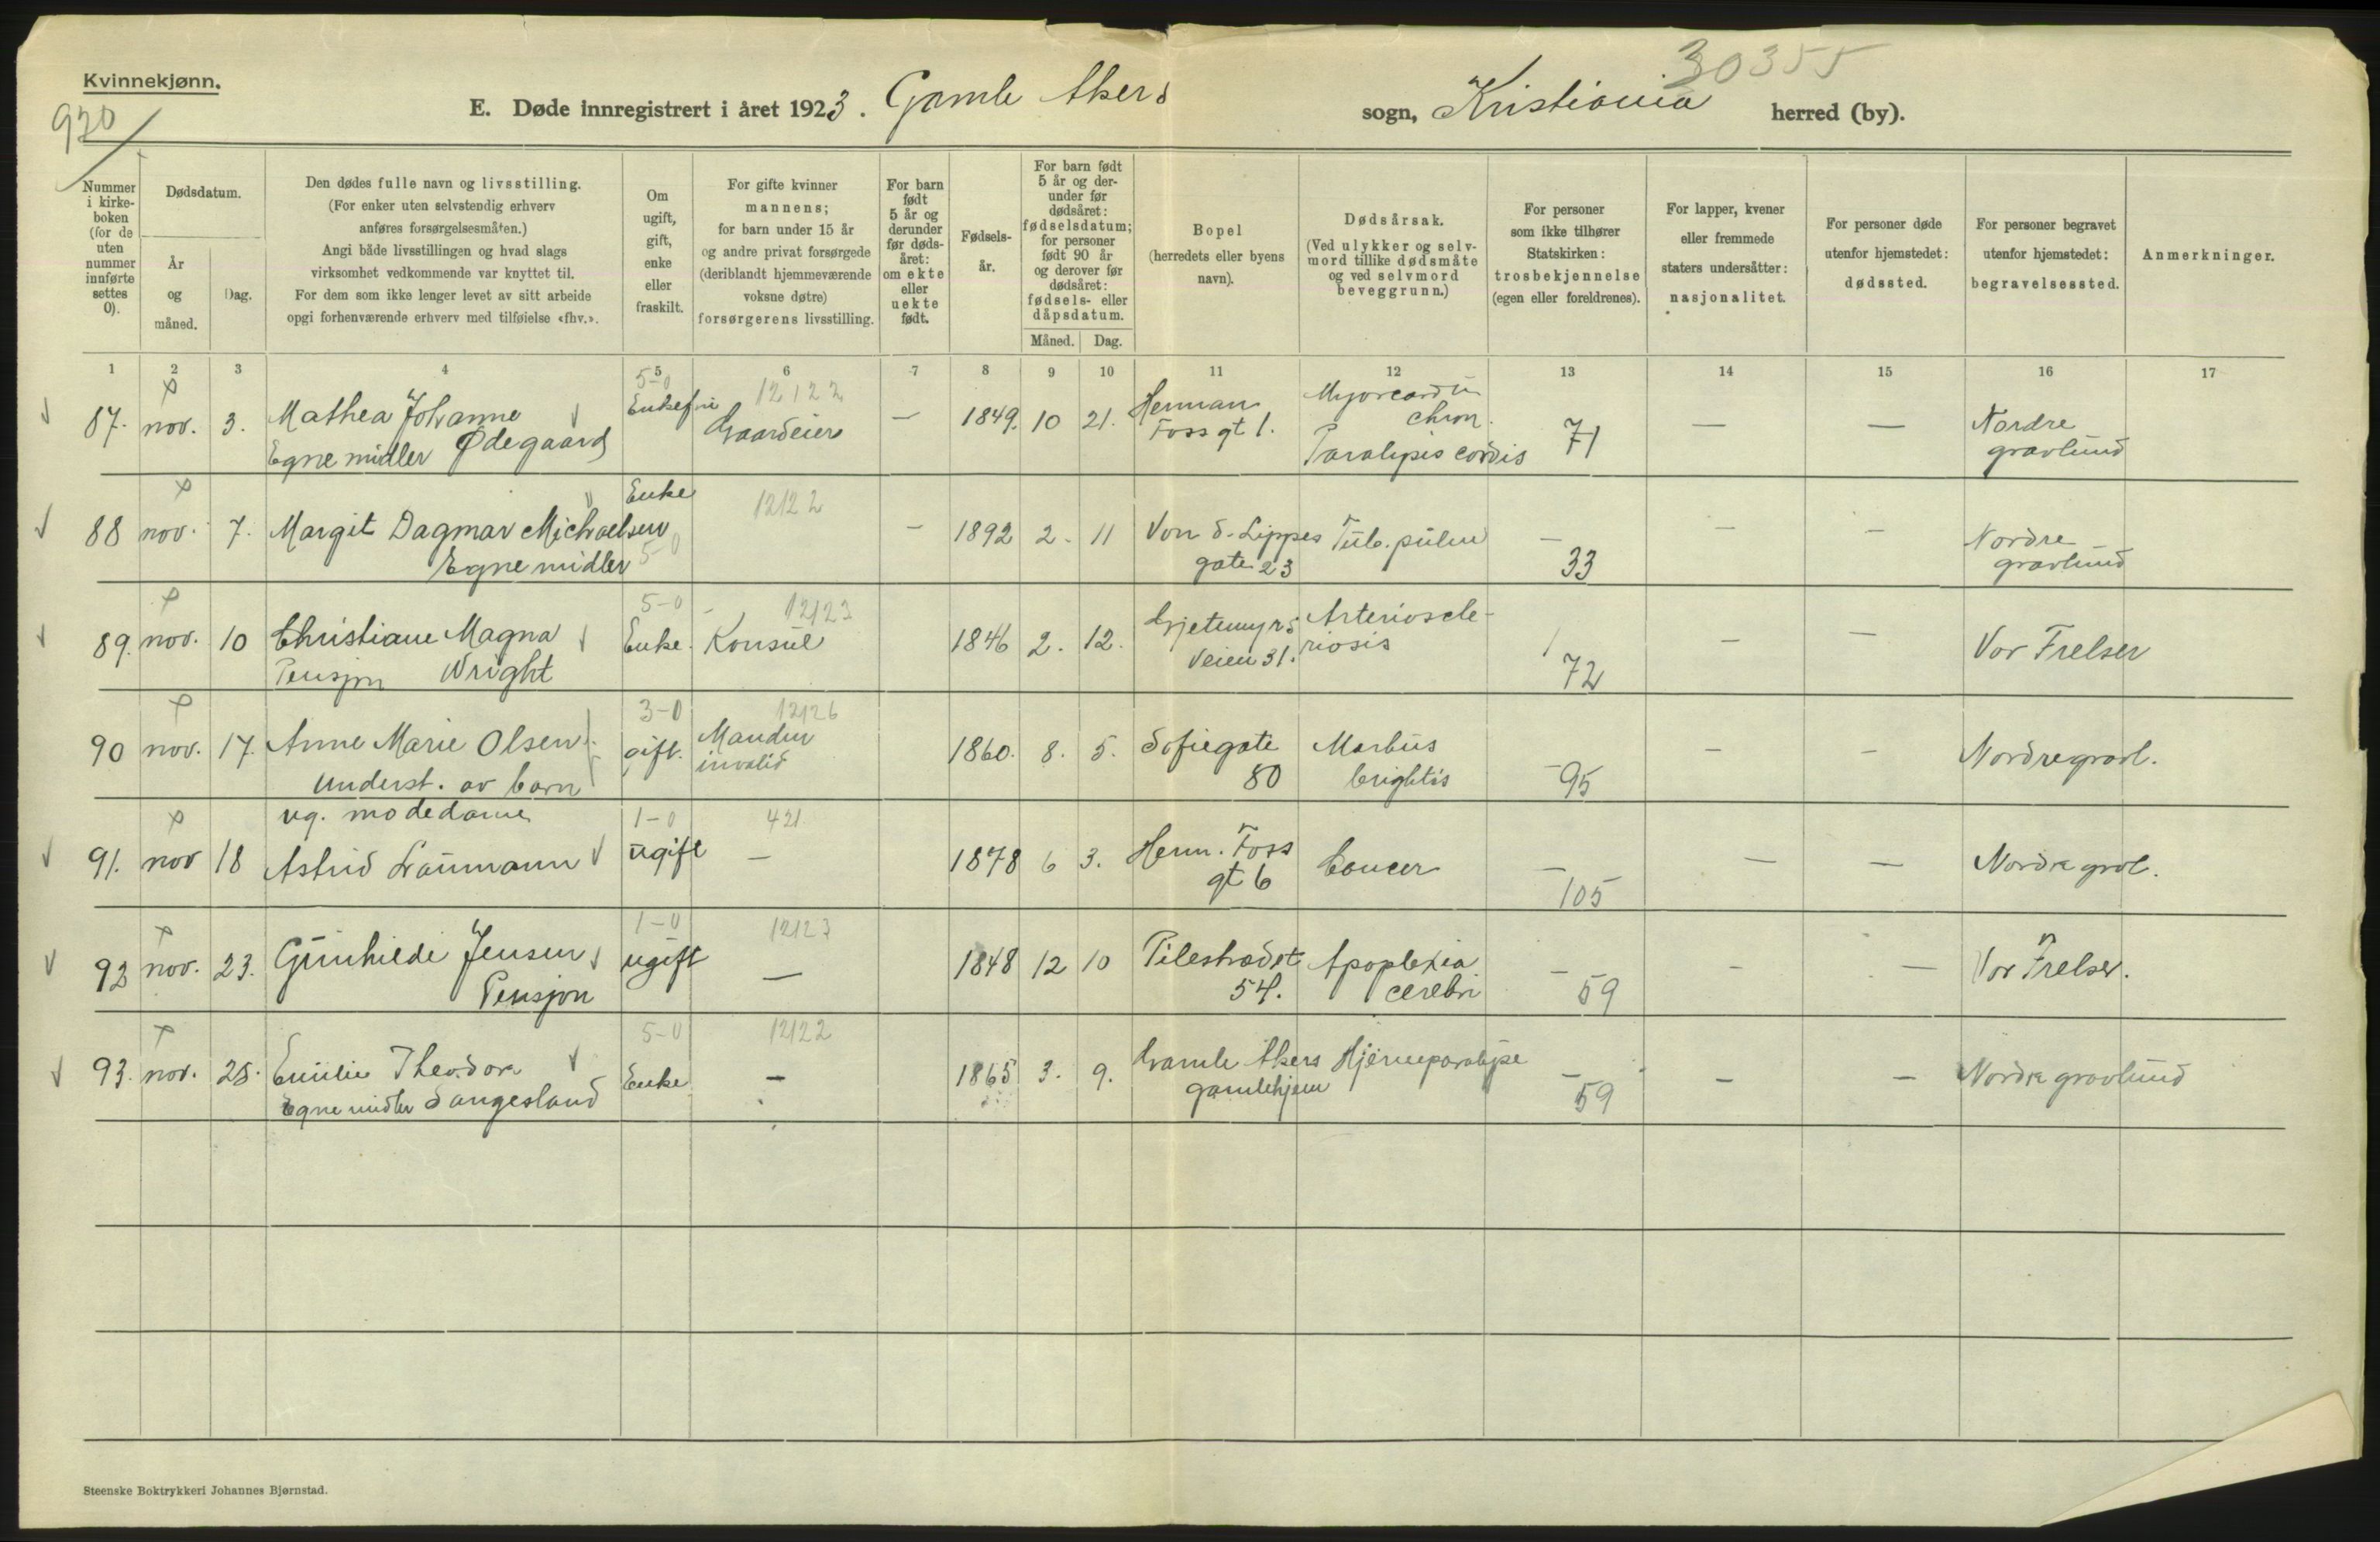 Kvinnekjønn.
920
30355
E. Døde innregistrert i året 1923. Gamle Akers sogn, Kristiania herred (by).
Nummer i kirke-boken (for de uten nummer innførte settes 0).
Dødsdatum.
År og måned.
Dag.
Den dødes fulle navn og livsstilling.
(For enker uten selvstendig erhverv
anføres forsørgelsesmåten.)
Angi både livsstillingen og hvad slags
virksomhet vedkommende var knyttet til.
For dem som ikke lenger levet av sitt arbeide
opgi forhenværende erhverv med tilføielse «fhv.».
Om
ugift,
gift,
enke
eller
fraskilt.
For gifte kvinner
mannens;
for barn under 15 år
og andre privat forsørgede
(deriblandt hjemmeværende
voksne døtre)
forsørgerens livsstilling.
For barn
født
5 år og
derunder
før døds-
året:
om ekte
eller
uekte
født.
Fødsels-
år.
For barn født
5 år og der-
under før
dødsåret:
fødselsdatum;
for personer
født 90 år
og derover før
dødsåret:
fødsels- eller
dåpsdatum.
Måned. Dag.
Bopel
(herredets eller byens
navn).
Dødsårsak.
(Ved ulykker og selv-
mord tillike dødsmåte
og ved selvmord
beveggrunn.)
For personer
som ikke tilhører
Statskirken:
trosbekjennelse
(egen eller foreldrenes).
For lapper, kvener
eller fremmede
staters undersåtter:
nasjonalitet.
For personer døde
utenfor hjemstedet:
dødssted.
For personer begravet
utenfor hjemstedet:
begravelsessted.
Anmerkninger.
1 2 3 4 5 6 7 8 9 10 11 12 13 14 15 16 17
5-0 12122
87. nov. 3. Mathea Johanne Ødegaard
Egne midler
Gaardeier — 1849. 10 21. Herman
Foss gt 1.
chron.
Paralysis cordis 71 — — Nordre
gravlund
88 nov. 7. Margit Dagmar Michaelsen
Egne midler 5-0
Enke 12122 — 1892 2. 11 Von d. Lippes
gate 23
Tub. pulm — 33 — — Nordre
gravlund
5-0 12123
89. nov. 10 Christiane Magna
Pensjon Wright
Enke. Konsul 1846 2. 12. Gjetemyrs
Veien 31.
Arterioscle-
riosis 72 — — Vor Frelser
3-0 12126
90 nov. 17. Anne Marie Olsen
Underst. av barn
gift. Manden
invalid 1860. 8. 5. Sofiegate
80
Morbus
brightis — 95 — — Nordre gravl.
ug. modedame 1-0 421
91. nov 18 Astrid Laumann
ugift — 1878 6 3. Herm. Foss
gt 6
Cancer — 105 — — Nordre gravl.
1-0 12123
92 nov. 23. Gunhilde Jensen
Pensjon
ugift — 1848 12 10 Pilestrædet
54.
Apoplexia
cerebri — 59 — — Vor Frelser.
5-0 12122
93. nov. 25. Emilie Theodora
Egne midler Sangesland
Enke — 1865 3. 9. Gamle Akers
gamlehjem
Hjerneparalyse — 59 — — Nordre gravlund
Steenske Boktrykkeri Johannes Bjørnstad.